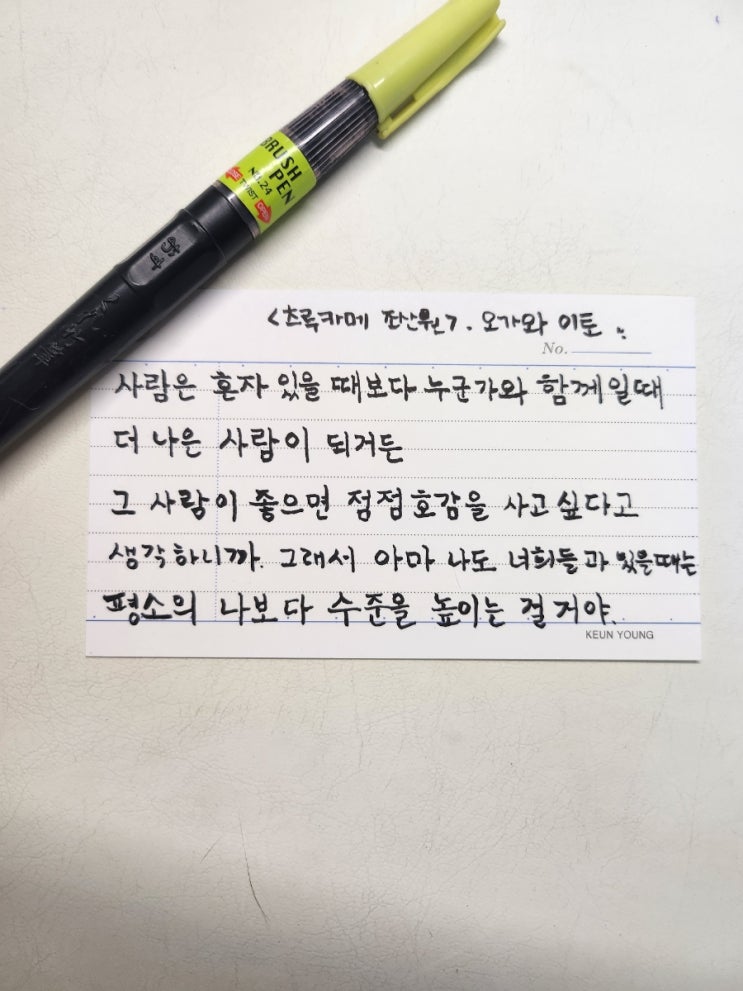 BRUSH
PEN
No.24
TWIST
OPEN
<츠루카메 조산원>. 오가와 이토 :
No.
사람은 혼자 있을 때보다 누군가와 함께일때
더 나은 사람이 되거든
그 사람이 좋으면 점점 호감을 사고 싶다고
생각하니까. 그래서 아마 나도 너희들과 있을때는
평소의 나보다 수준을 높이는 걸 거야.
KEUN YOUNG